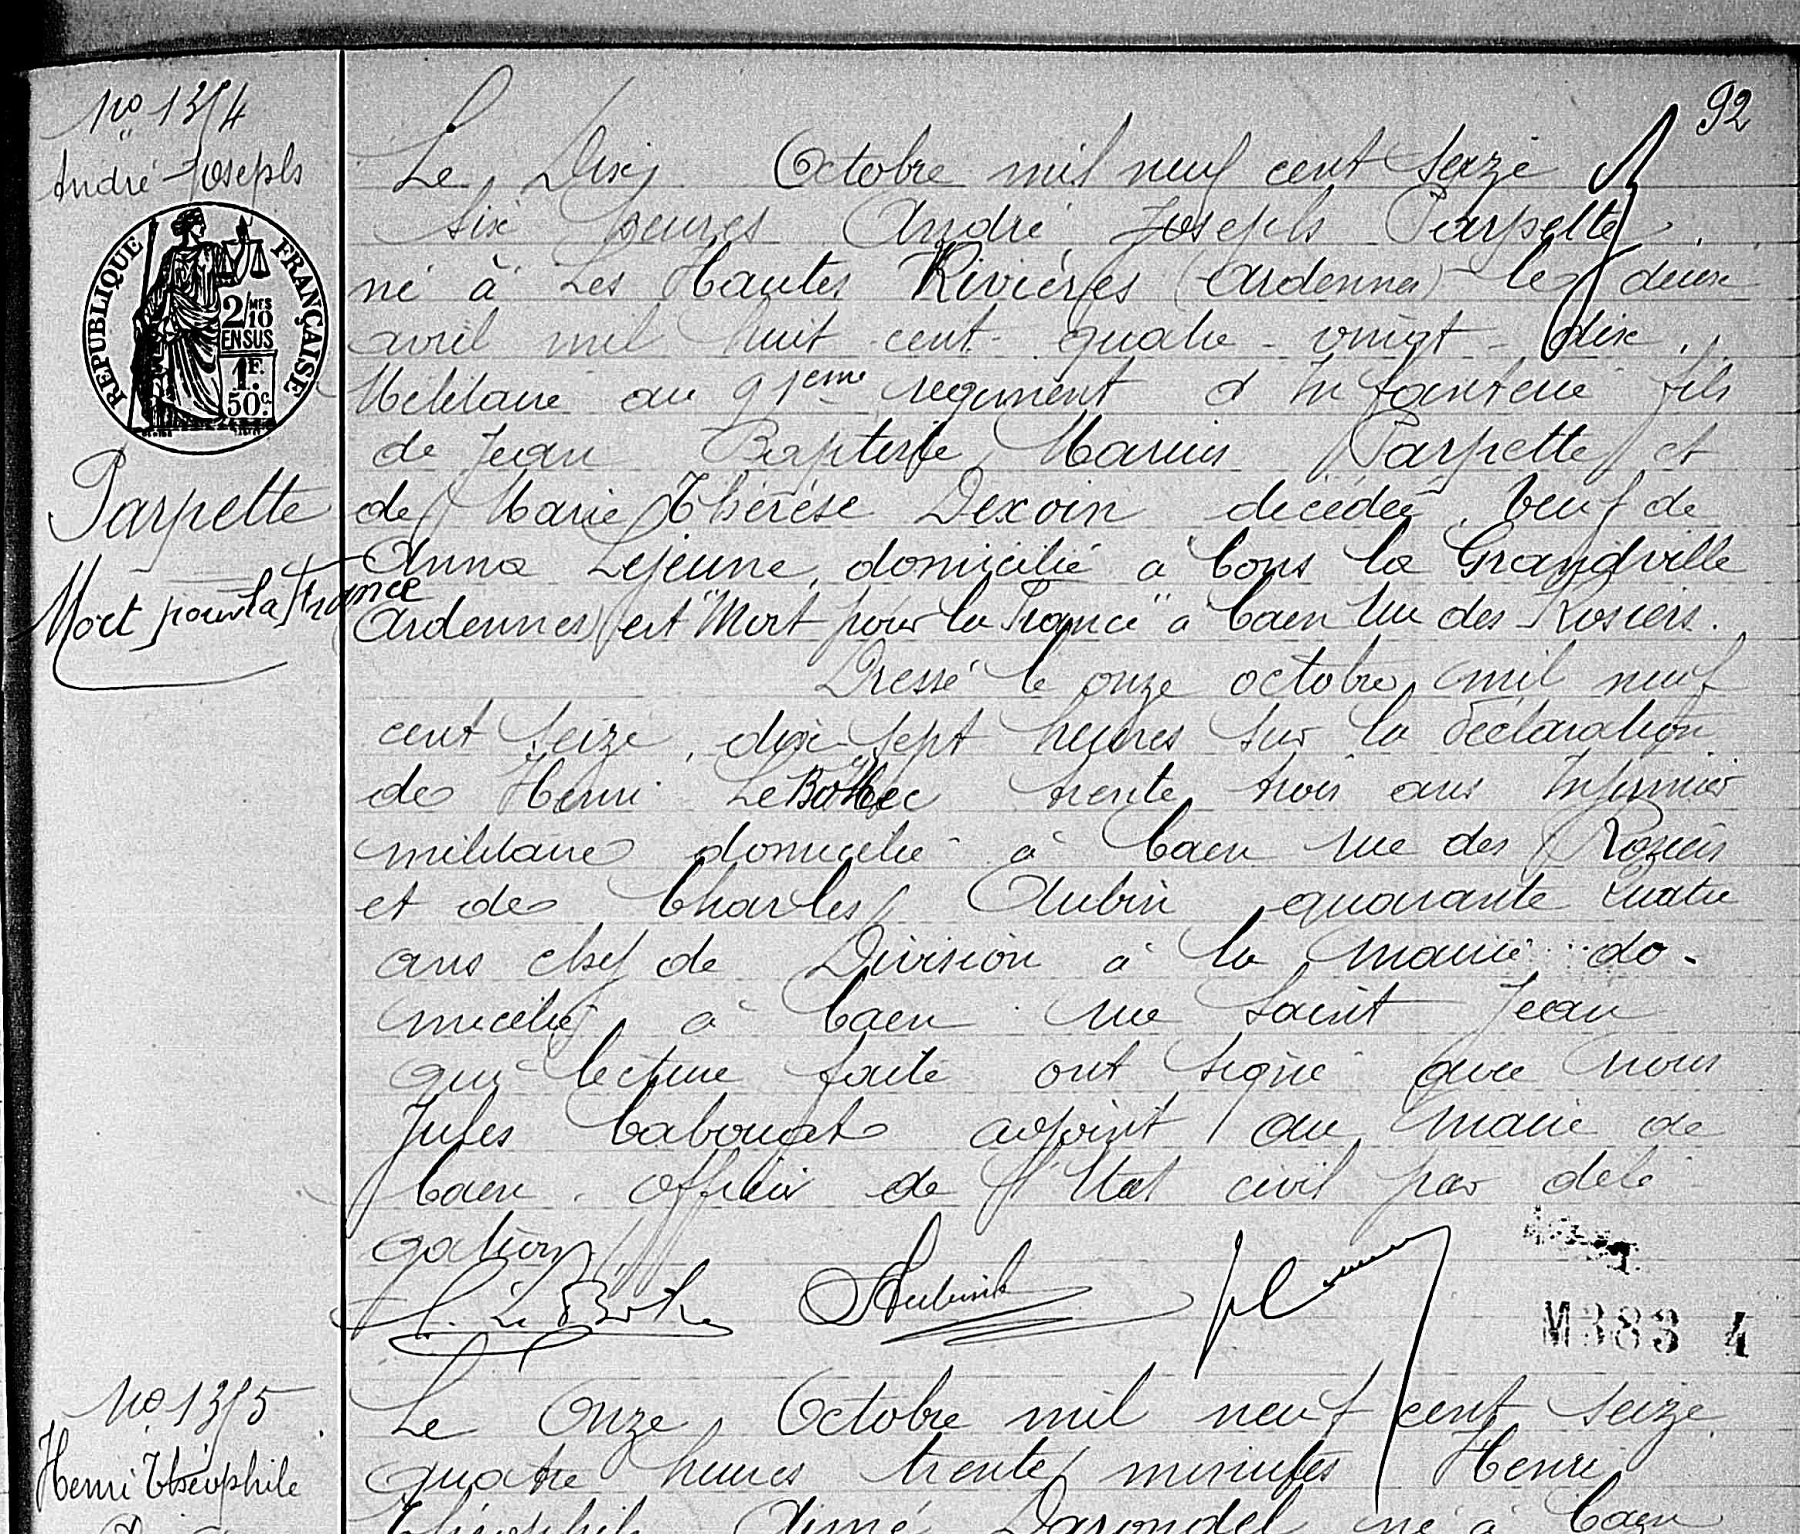 92
No 1354
André Joseph
RÉPUBLIQUE FRANÇAISE
2/10 MES
EN SUS
1F.
50c.
Parpette
Mort pour la France
Le Dix Octobre mil neuf cent seize
six heures André Joseph Parpette
né à Les Hautes Rivières (Ardennes) le deux
avril mil huit cent quatre-vingt-dix,
Militaire au 91eme regiment d'Infanterie fils
de Jean Baptiste Marius Parpette et
de Marie Thérèse Dexoin décédée, veuf de
Anna Lejeune, domicilié à Cons la Grandville
(Ardennes) est "Mort pour la France" à Caen rue des Rosiers.
Dressé le onze octobre mil neuf
cent seize, dix-sept heures sur la déclaration
de Henri Le trente trois ans Infirmier
militaire domicilié à Caen rue des Rosiers
et de Charles Aubin quarante quatre
ans chef de Division à la mairie do-
micilié à Caen rue Saint Jean
qui lecture faite ont signé avec nous
Jules adjoint au maire de
Caen, officier de l'Etat civil par délé
gation
M383 4
No 1355
Henri Théophile
Le Onze Octobre mil neuf cent seize
quatre heures trente minutes Henri
Théophile Aimé né à Caen